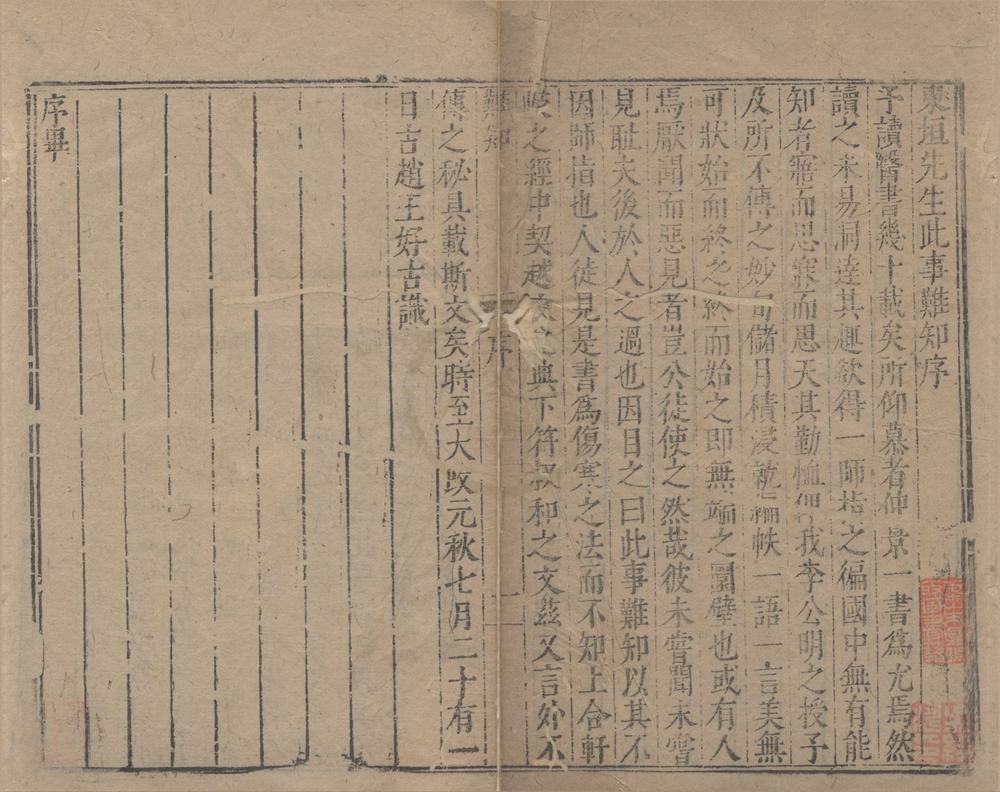 東垣先生此事難知序
予讀醫書幾十載矣所仰慕者仲景一書為尤焉然
讀之未易洞達其趣欲得一師指之徧國中無有能
知者寤而思寐而思天其勤恤我李公明之授予
及所不傳之妙旬儲月積浸就編帙一語一言美無
可狀始而終之終而始之即無端之圜壁也或有人
焉厭聞而惡見者豈公徒使之然哉彼未嘗聞未嘗
見耻夫後於人之過也因目之曰此事難知以其不
因師指也人徒見是書爲傷寒之法而不知上合軒
岐之經中契越人之典下符叔和之文兹又言外不
難知 序 一
傳之秘具載斯文矣時至大改元秋七月二十有一
日古趙王好古識
序畢